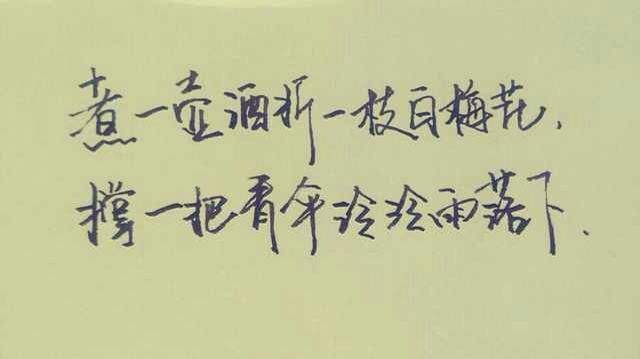 煮一壶酒折一枝白梅花,
撑一把青伞泠泠雨落下.